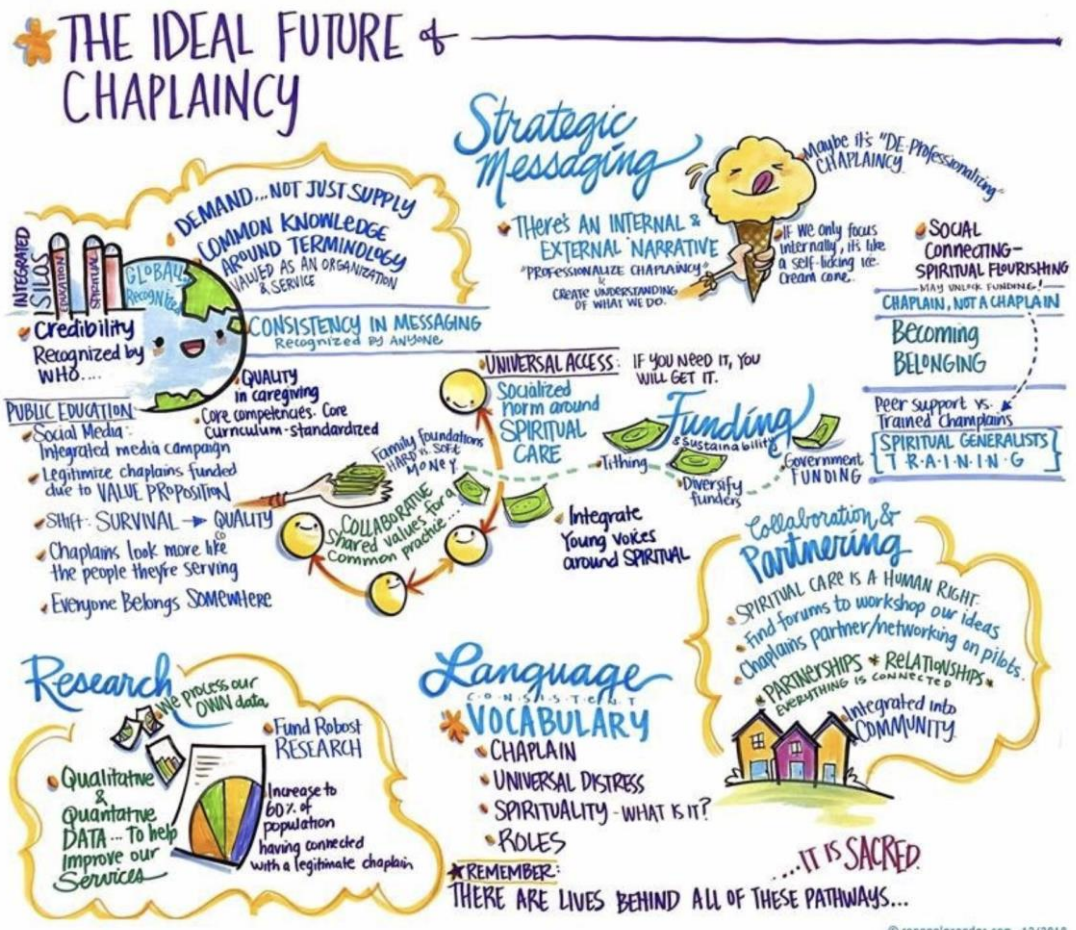 THE IDEAL FUTURE of
CHAPLAINCY
DEMAND...NOT JUST SUPPLY
COMMON KNOWLEDGE
AROUND TERMINOLOGY
VALUED AS AN ORGANIZATION
& SERVICE
INTEGRATED
SILOS
EDUCATION
SPIRITUAL
GLOBAL
Recognized
Credibility
Recognized by
WHO....
CONSISTENCY IN MESSAGING
Recognized BY ANYONE
QUALITY
in caregiving
Core competencies. Core
Curriculum-standardized
PUBLIC EDUCATION
Social Media:
Integrated media campaign
Legitimize chaplains funded
due to VALUE PROPOSITION
Shift: SURVIVAL QUALITY
Chaplains look more like
the people they're serving
Everyone Belongs SOMEWHERE
Strategic
Messaging
THERE'S AN INTERNAL &
EXTERNAL NARRATIVE
"PROFESSIONALIZE CHAPLAINCY"
&
CREATE UNDERSTANDING
OF WHAT WE DO.
Maybe it's "DE-Professionalizing"
CHAPLAINCY.
IF WE ONLY FOCUS
internally, it's like
a self-licking ice
cream cone.
SOCIAL
CONNECTING-
SPIRITUAL FLOURISHING
MAY UNLOCK FUNDING!
CHAPLAIN, NOT A CHAPLAIN
Becoming
BELONGING
Peer support vs.
Trained Champlains
SPIRITUAL GENERALISTS
T•R•A•I•N•I•N•G
UNIVERSAL ACCESS: IF YOU NEED IT, YOU
WILL GET IT.
Socialized
norm around
SPIRITUAL
CARE
Funding
& Sustainability
Family foundations
HARD vs. SOFT
MONEY
Tithing
Diversify
funders
Government
FUNDING
COLLABORATIVE
Shared values for a
common practice...
Integrate
Young voices
around SPIRITUAL
Collaboration &
Partnering
SPIRITUAL CARE IS A HUMAN RIGHT.
Find forums to workshop our ideas
Chaplains partner/networking on pilots.
PARTNERSHIPS * RELATIONSHIPS*
EVERYTHING IS CONNECTED
Integrated into
COMMUNITY.
Research
We process our
OWN data
Fund Robost
RESEARCH
Qualitative
&
Quantative
DATA... To help
improve our
Services
Increase to
60% of
population
having connected
with a legitimate chaplain
Language
CONSISTENT
VOCABULARY
CHAPLAIN
UNIVERSAL DISTRESS
SPIRITUALITY - WHAT IS IT?
ROLES
REMEMBER:
THERE ARE LIVES BEHIND ALL OF THESE PATHWAYS...
...IT IS SACRED.